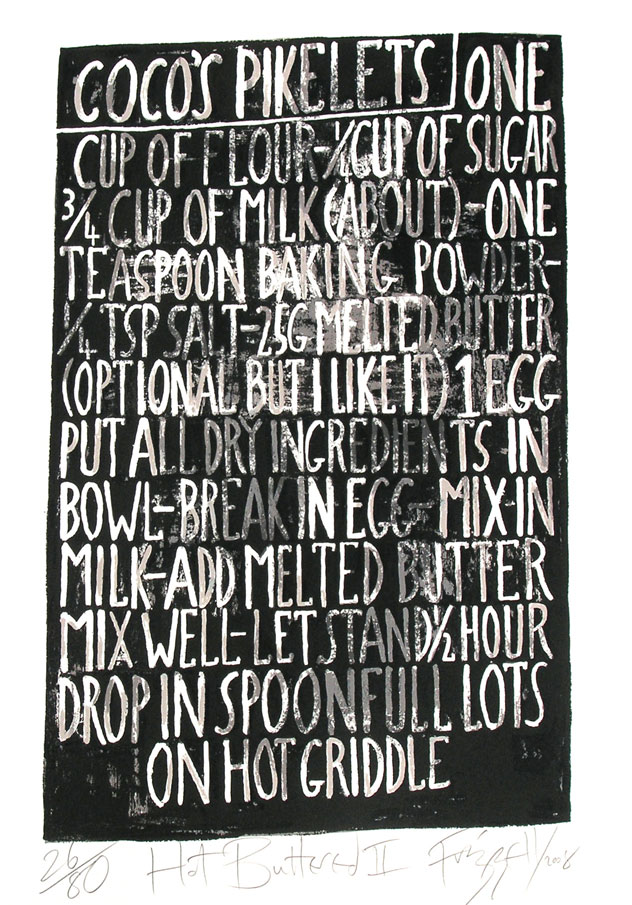 COCO'S PIKELETS ONE
CUP OF FLOUR-¼CUP OF SUGAR
¾ CUP OF MILK (ABOUT)-ONE
TEASPOON BAKING POWDER-
¼ TSP SALT-25G MELTED BUTTER
(OPTIONAL BUT I LIKE IT) 1 EGG
PUT ALL DRY INGREDIENTS IN
BOWL-BREAK IN EGG-MIX IN
MILK-ADD MELTED BUTTER
MIX WELL-LET STAND ½ HOUR
DROP IN SPOONFULL LOTS
ON HOT GRIDDLE
26/80 Hot Buttered II Frizzell/2008